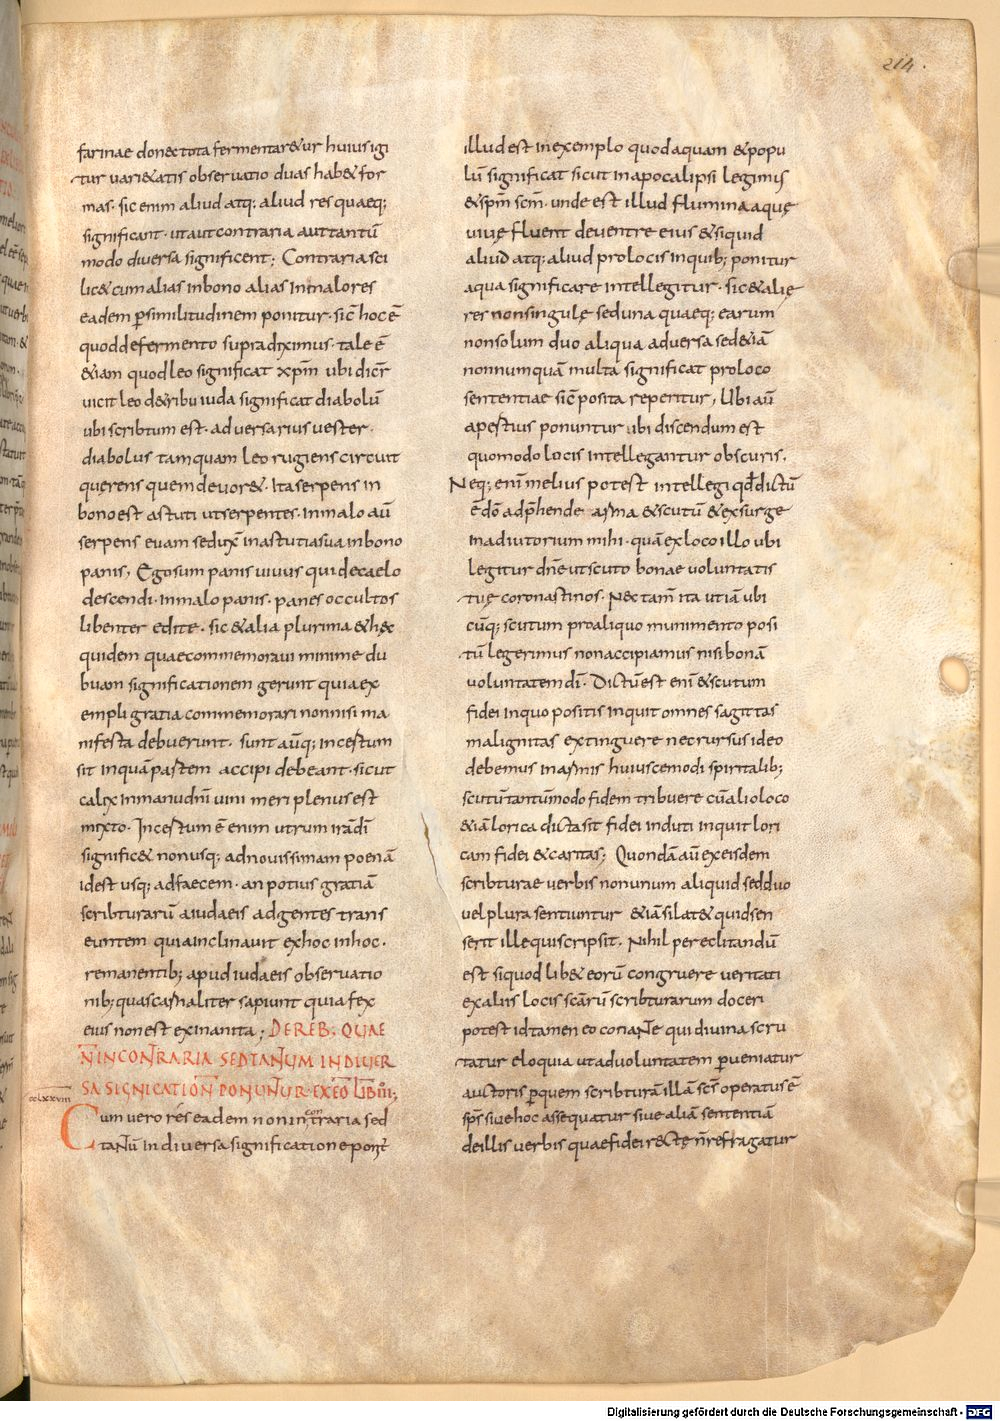 214.
farinae donec tota fermentaretur huius igi
tur varietatis observatio duas habet for
mas. sic enim aliud atq; aliud res quaeq;
significant. ut aut contraria aut tantū
modo diversa significent; Contraria sci
licet cum alias in bono alias in malo res
eadem ꝑ similitudinem ponitur. sic̄ hoc ē
quod de fermento supra diximus. tale ē
etiam quod leo significat xp̄m ubi dicit̄
vicit leo de tribu iuda significat diabolū
ubi scribtum est. adversarius vester.
diabolus tamquam leo rugiens circuit
querens quem devoret. Ita serpens in
bono est astuti ut serpentes. in malo aū
serpens euam seduxit̄ in astutia sua in bono
panis, Ego sum panis vivus qui de caelo
descendi. in malo panis. panes occultos
libenter edite. sic et alia plurima et hęc
quidem quae commemoravi minime du
buam significationem gerunt quia ex
empli gratia commemorari non nisi ma
nifesta debuerunt. sunt aūq; incestum
sit in quā partem accipi debeant. sicut
calix in manu dn̄i vini meri plenus est
mixto. Incestum ē enim utrum irā dī
significet non usq; ad novissimam poenā
id est usq; ad faecem. an potius gratiā
scribturarū a iudaeis ad gentes trans
euntem quia inclinavit ex hoc in hoc.
remanentib; apud iudaeis observatio
nib; quas carnaliter sapiunt quia fex
eius non est exinanita; DE REB; QUAE
N̄ IN CONTRARIA SED TANTUM IN DIVER
SA SIGNICATION̄ PONUNTUR. EX EO LIB̄ III;
cclxxviii
Cum vero res eadem non in contraria sed
tantū in diversa significatione ponit̄
illud est in exemplo quod aquam et popu
lū significat sicut in apocalipsi legimus
et sp̄m sc̄m. unde est illud flumina aquę
vivę fluent de ventre eius et siquid
aliud atq; aliud pro locis in quib; ponitur
aqua significare intellegitur. sic et alię
res non singulę sed una quaeq; earum
non solum duo aliqua adversa sed etiā
non numquā multa significat pro loco
sententiae sic̄ posita reperitur, Ubi aū
apestius ponuntur ubi discendum est
quomodo locis intellegantur obscuris.
Neq; enī melius potest intellegi qđ dictū
ē dō adp̄hende arma et scutū et exsurge
in adiutorium mihi. quā ex loco illo ubi
legitur dn̄e ut scuto bonae voluntatis
tuę coronasti nos. Nec tam̄ ita ut iā ubi
cūq; scutum pro aliquo munimento posi
tū legerimus non accipiamus nisi bonā
voluntatem dī. Dictū est enī et scutum
fidei in quo positis inquit omnes sagittas
malignitas extinguere nec rursus ideo
debemus in armis huiuscemodi spiritalib;
scutū tantūmodo fidem tribuere cū alio loco
etiā lorica dicta sit fidei induti inquit lori
cam fidei et caritas; Quondā aū ex eisdem
scribturae verbis non unum aliquid sed duo
vel plura sentiuntur etiā si latet quid sen
serit ille qui scripsit. Nihil pereclitandū
est si quodlibet eorū congruere veritati
ex aliis locis sc̄arū scribturarum doceri
potest id tamen eo conante qui divina scru
tatur eloquia ut ad voluntatem ꝑveniatur
auctoris ꝑ quem scribturā illā sc̄s operatus ē
sp̄s sive hoc assequatur sive aliā sententiā
de illis verbis quae fidei rectę n̄ refragatur
Digitalisierung gefördert durch die Deutsche Forschungsgemeinschaft - DFG